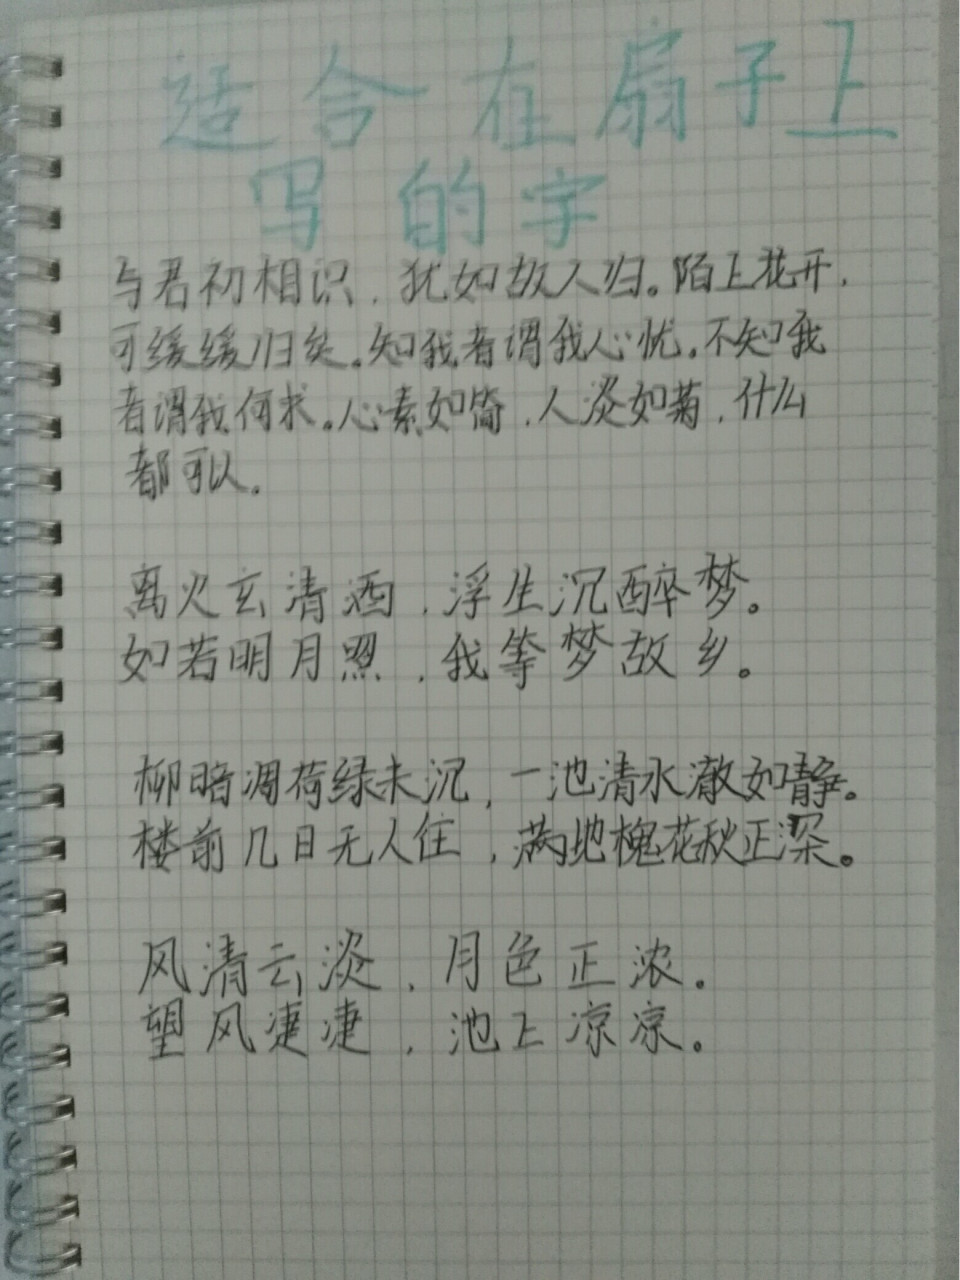 适合在扇子上
写的字
与君初相识，犹如故人归。陌上花开，
可缓缓归矣。知我者谓我心忧。不知我
者谓我何求。心素如简，人淡如菊，什么
都可以。
离火玄清酒，浮生沉醉梦。
如若明月照，我等梦故乡。
柳暗凋荷绿未沉，一池清水澈如静。
楼前几日无人住，满地槐花秋正深。
风清云淡，月色正浓。
望风凄凄，池上凉凉。